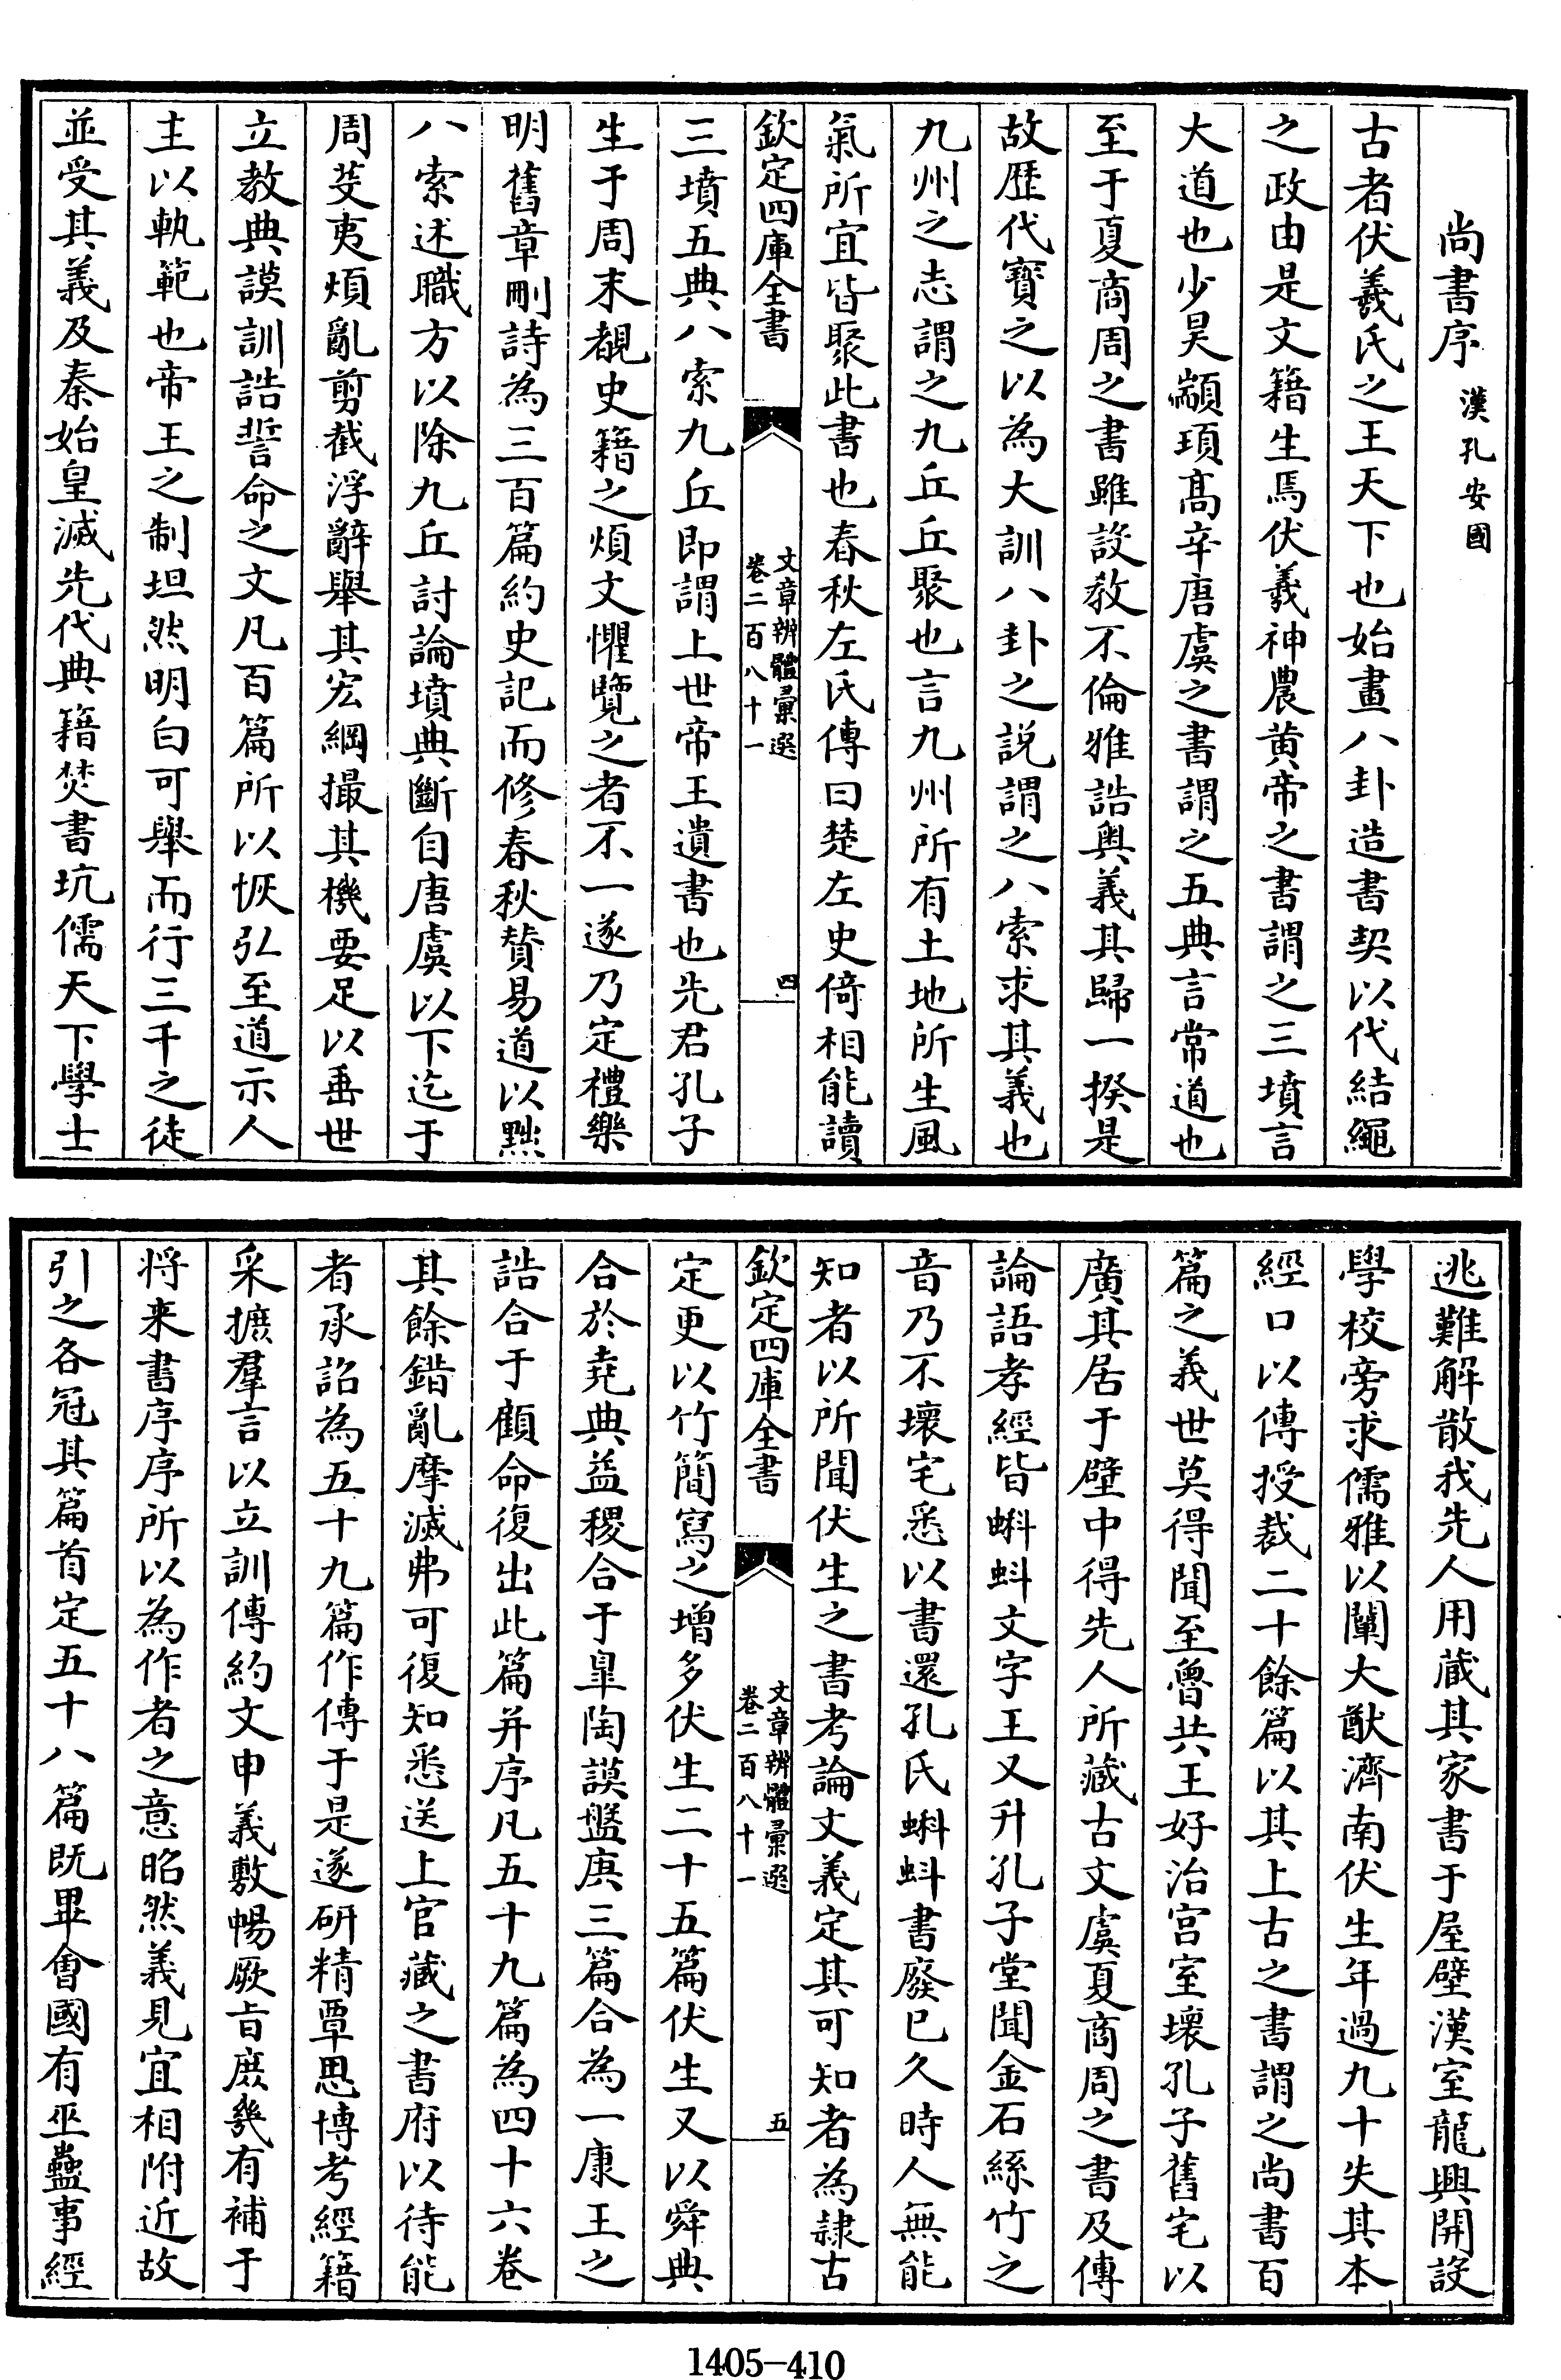 尚書序 漢孔安國
古者伏羲氏之王天下也始畫八卦造書契以代結繩
之政由是文籍生焉伏羲神農黄帝之書謂之三墳言
大道也少昊顓頊髙辛唐虞之書謂之五典言常道也
至于夏商周之書雖設教不倫雅誥奥義其歸一揆是
故歴代寳之以為大訓八卦之説謂之八索求其義也
九州之志謂之九丘丘聚也言九州所有土地所生風
氣所宜皆聚此書也春秋左氏傳曰楚左史倚相能讀
欽定四庫全書
文章辨體彙選
卷二百八十一
四
三墳五典八索九丘即謂上世帝王遺書也先君孔子
生于周末覩史籍之煩文懼覽之者不一遂乃定禮樂
明舊章刪詩為三百篇約史記而修春秋賛易道以黜
八索述職方以除九丘討論墳典斷自唐虞以下迄于
周芟夷煩亂剪截浮辭舉其宏綱撮其機要足以垂世
立教典謨訓誥誓命之文凡百篇所以恢弘至道示人
主以軌範也帝王之制坦然明白可舉而行三千之徒
並受其義及秦始皇滅先代典籍焚書坑儒天下學士
逃難解散我先人用蔵其家書于屋壁漢室龍興開設
學校旁求儒雅以闡大猷濟南伏生年過九十失其本
經口以傳授裁二十餘篇以其上古之書謂之尚書百
篇之義世莫得聞至魯共王好治宫室壞孔子舊宅以
廣其居于壁中得先人所藏古文虞夏商周之書及傳
論語孝經皆蝌蚪文字王又升孔子堂聞金石絲竹之
音乃不壞宅悉以書還孔氏蝌蚪書廢已久時人無能
知者以所聞伏生之書考論文義定其可知者為隷古
欽定四庫全書
文章辨體彙選
卷二百八十一
五
定更以竹簡寫之增多伏生二十五篇伏生又以舜典
合於堯典益稷合于臯陶謨盤庚三篇合為一康王之
誥合于顧命復出此篇并序凡五十九篇為四十六卷
其餘錯亂摩滅弗可復知悉送上官藏之書府以待能
者承詔為五十九篇作傳于是遂研精覃思博考經籍
采摭羣言以立訓傳約文申義敷暢厥㫖庶幾有補于
将来書序序所以為作者之意昭然義見宜相附近故
引之各冠其篇首定五十八篇既畢會國有巫蠱事經
1405—410